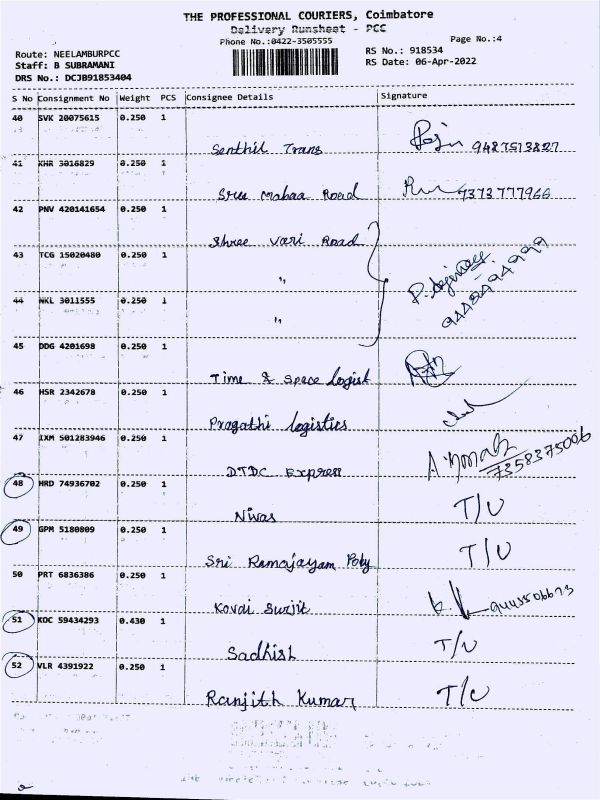 THE PROFESSIONAL COURIERS, Coimbatore
Delivery Runsheet - PCC
Phone No.:0422-3505555
Page No.:4
Route: NEELAMBURPCC
RS No.: 918534
Staff: B SUBRAMANI
RS Date: 06-Apr-2022
DRS No.: DCJB91853404
S No Consignment No Weight PCS Consignee Details Signature
40 SVK 20075615 0.250 1
Senthil Trans 9487513827
41 KHR 3016829 0.250 1
Sree Mahaa Road 7373777966
42 PNV 420141654 0.250 1
Shree Vari Road
43 TCG 15020480 0.250 1
"
44 NKL 3011555 0.250 1
"
9448494999
45 DDG 4201698 0.250 1
Time & Space Logist
46 HSR 2342678 0.250 1
Pragathi logistics
47 IXM 501283946 0.250 1
DTDC Express 7358375006
48 HRD 74936702 0.250 1
Nivas T/U
49 GPM 5180809 0.250 1
Sri Ramajayam Poly T/U
50 PRT 6836386 0.250 1
Kovai Surjit
51 KOC 59434293 0.430 1
Sadhish T/U
52 VLR 4391922 0.250 1
Ranjith Kumar T/U